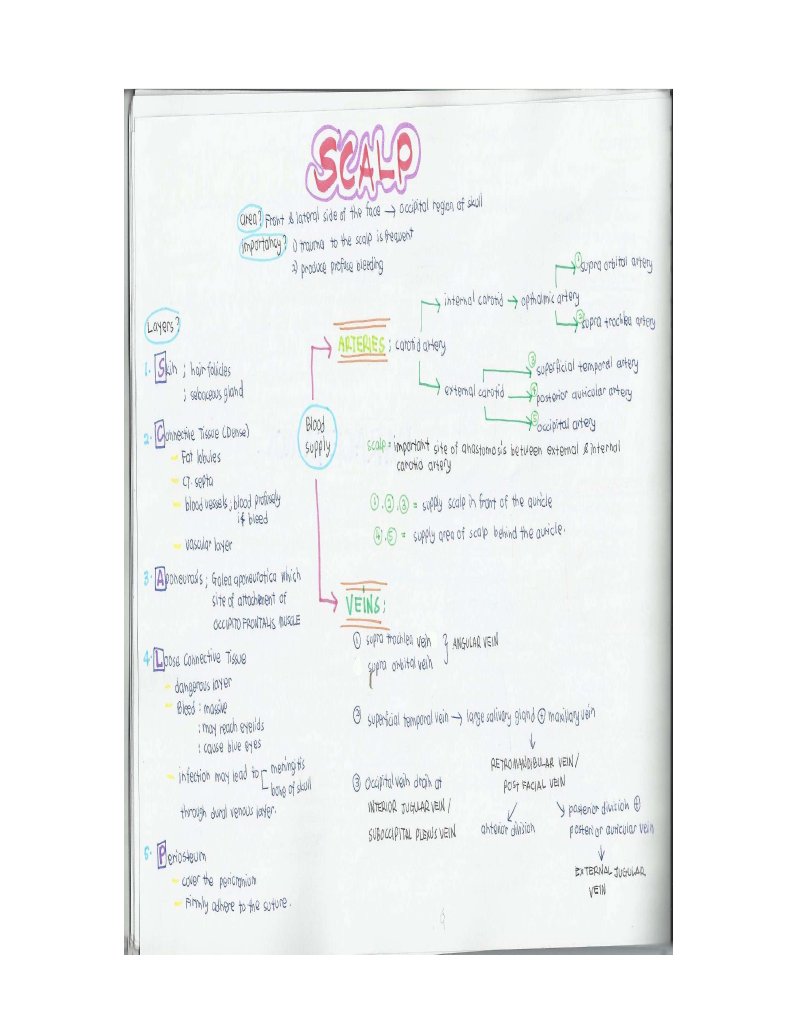 SCALP
area? Front & lateral side of the face → occipital region of skull
importancy? 1) trauma to the scalp is frequent
2) produce profuse bleeding
Layers?
1. Skin ; hair folicles
; sebaceous gland
2. Connective Tissue (Dense)
- Fat lobules
- CT. septa
- blood vessels ; blood profusely
if bleed
- vascular layer
3. Aponeurosis ; Galea aponeurotica which
site of attachement of
OCCIPITO FRONTALIS MUSCLE
4. Loose Connective Tissue
- dangerous layer
- Bleed : massive
: may reach eyelids
: cause blue eyes
- infection may lead to meningitis
bone of skull
through dural venous layer.
5. Periosteum
- cover the pericranium
- Firmly adhere to the suture.
Blood
supply
ARTERIES ; carotid artery
internal carotid → opthalmic artery
① supra orbital artery
② supra trochlea artery
external carotid
③ superficial temporal artery
④ posterior auricular artery
⑤ occipital artery
scalp = important site of anastomosis between external & internal
carotid artery
①,②,③ = supply scalp in front of the auricle
④,⑤ = supply area of scalp behind the auricle.
VEINS :
① supra trochlea vein } ANGULAR VEIN
supra orbital vein
② superficial temporal vein → large salivary gland ⊕ maxillary vein
↓
RETROMANDIBULAR VEIN /
POST FACIAL VEIN
anterior division
posterior division ⊕
posterior auricular vein
↓
EXTERNAL JUGULAR
VEIN
③ Occipital vein drain at
INTERIOR JUGULAR VEIN /
SUBOCCIPITAL PLEXUS VEIN